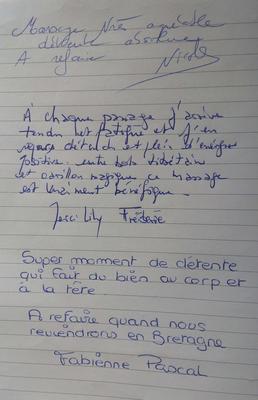 Massage Très agréable
détente absolue
A refaire
Nicole
À chaque passage j'arrive
tendu et fatigué et j'en
repars détendu et plein d'énergie
positive. entre bols tibétain
et carillon magique ce massage
est vraiment bénéfique.
Merci Lily Frédéric
Super moment de détente
qui fait du bien au corp et
à la tête.
A refaire quand nous
reviendrons en Bretagne
Fabienne Pascal